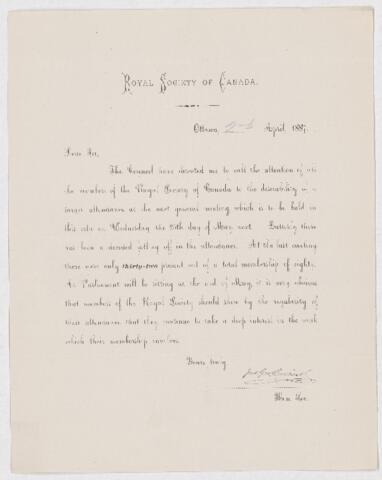 ROYAL SOCIETY OF CANADA.
Ottawa, 2nd April 1887.
Dear Sir,
The Council have directed me to call the attention of all
the members of the Royal Society of Canada to the desirability of a
larger attendance at the next general meeting which is to be held in
this city on Wednesday the 25th day of May next. Latterly there
has been a decided falling off in the attendance. At the last meeting
there were only thirty-two present out of a total membership of eighty.
As Parliament will be sitting at the end of May, it is very obvious
that members of the Royal Society should show by the regularity of
their attendance that they continue to take a deep interest in the work
which their membership involves.
Yours truly
Hon. Sec.